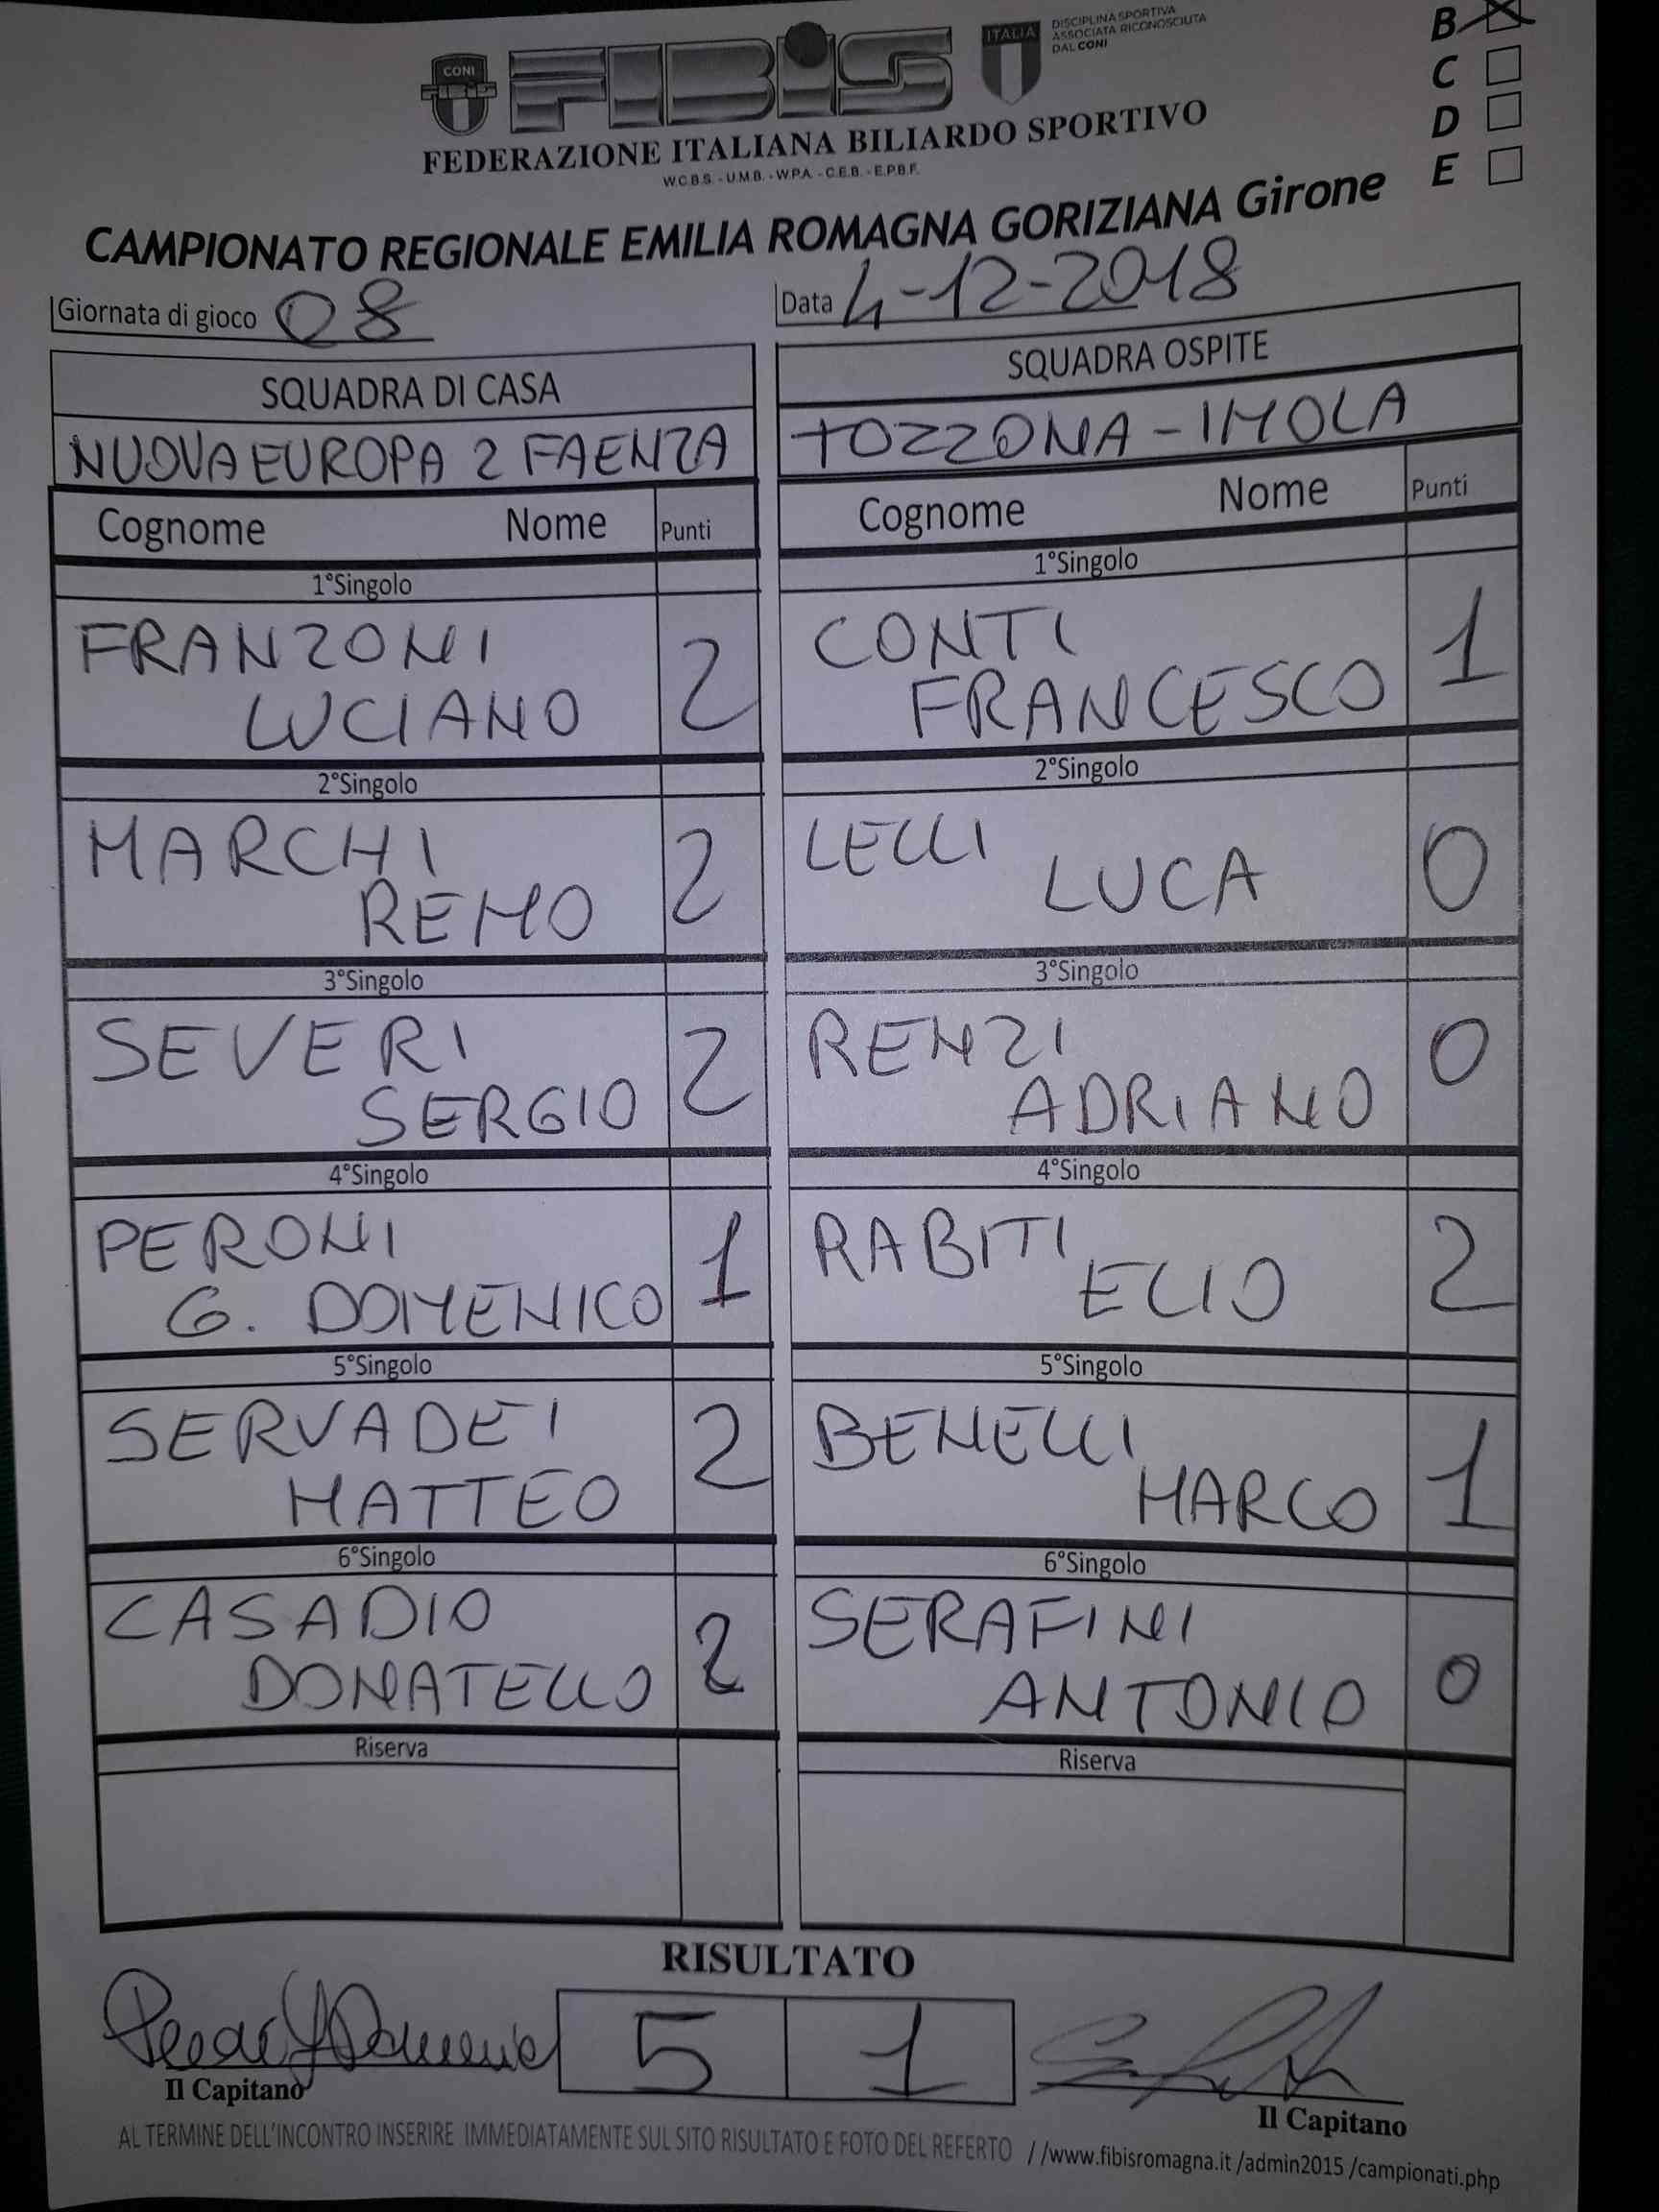 CONI
FIBIS
ITALIA
DISCIPLINA SPORTIVA
ASSOCIATA RICONOSCIUTA
DAL CONI
FEDERAZIONE ITALIANA BILIARDO SPORTIVO
W.C.B.S. - U.M.B. - W.P.A. - C.E.B. - E.P.B.F.
B
C
D
E
CAMPIONATO REGIONALE EMILIA ROMAGNA GORIZIANA Girone
Giornata di gioco 08
Data 4-12-2018
SQUADRA DI CASA
SQUADRA OSPITE
NUOVA EUROPA 2 FAENZA
TOZZONA - IMOLA
Cognome Nome Punti
Cognome Nome Punti
1°Singolo
1°Singolo
FRANZONI
LUCIANO 2
CONTI
FRANCESCO 1
2°Singolo
2°Singolo
MARCHI
REMO 2
LELLI
LUCA 0
3°Singolo
3°Singolo
SEVERI
SERGIO 2
RENZI
ADRIANO 0
4°Singolo
4°Singolo
PERONI
G. DOMENICO 1
RABITI
ELIO 2
5°Singolo
5°Singolo
SERVADEI
MATTEO 2
BENELLI
MARCO 1
6°Singolo
6°Singolo
CASADIO
DONATELLO 2
SERAFINI
ANTONIO 0
Riserva
Riserva
RISULTATO
5 1
Il Capitano
Il Capitano
AL TERMINE DELL'INCONTRO INSERIRE IMMEDIATAMENTE SUL SITO RISULTATO E FOTO DEL REFERTO //www.fibisromagna.it /admin2015 /campionati.php